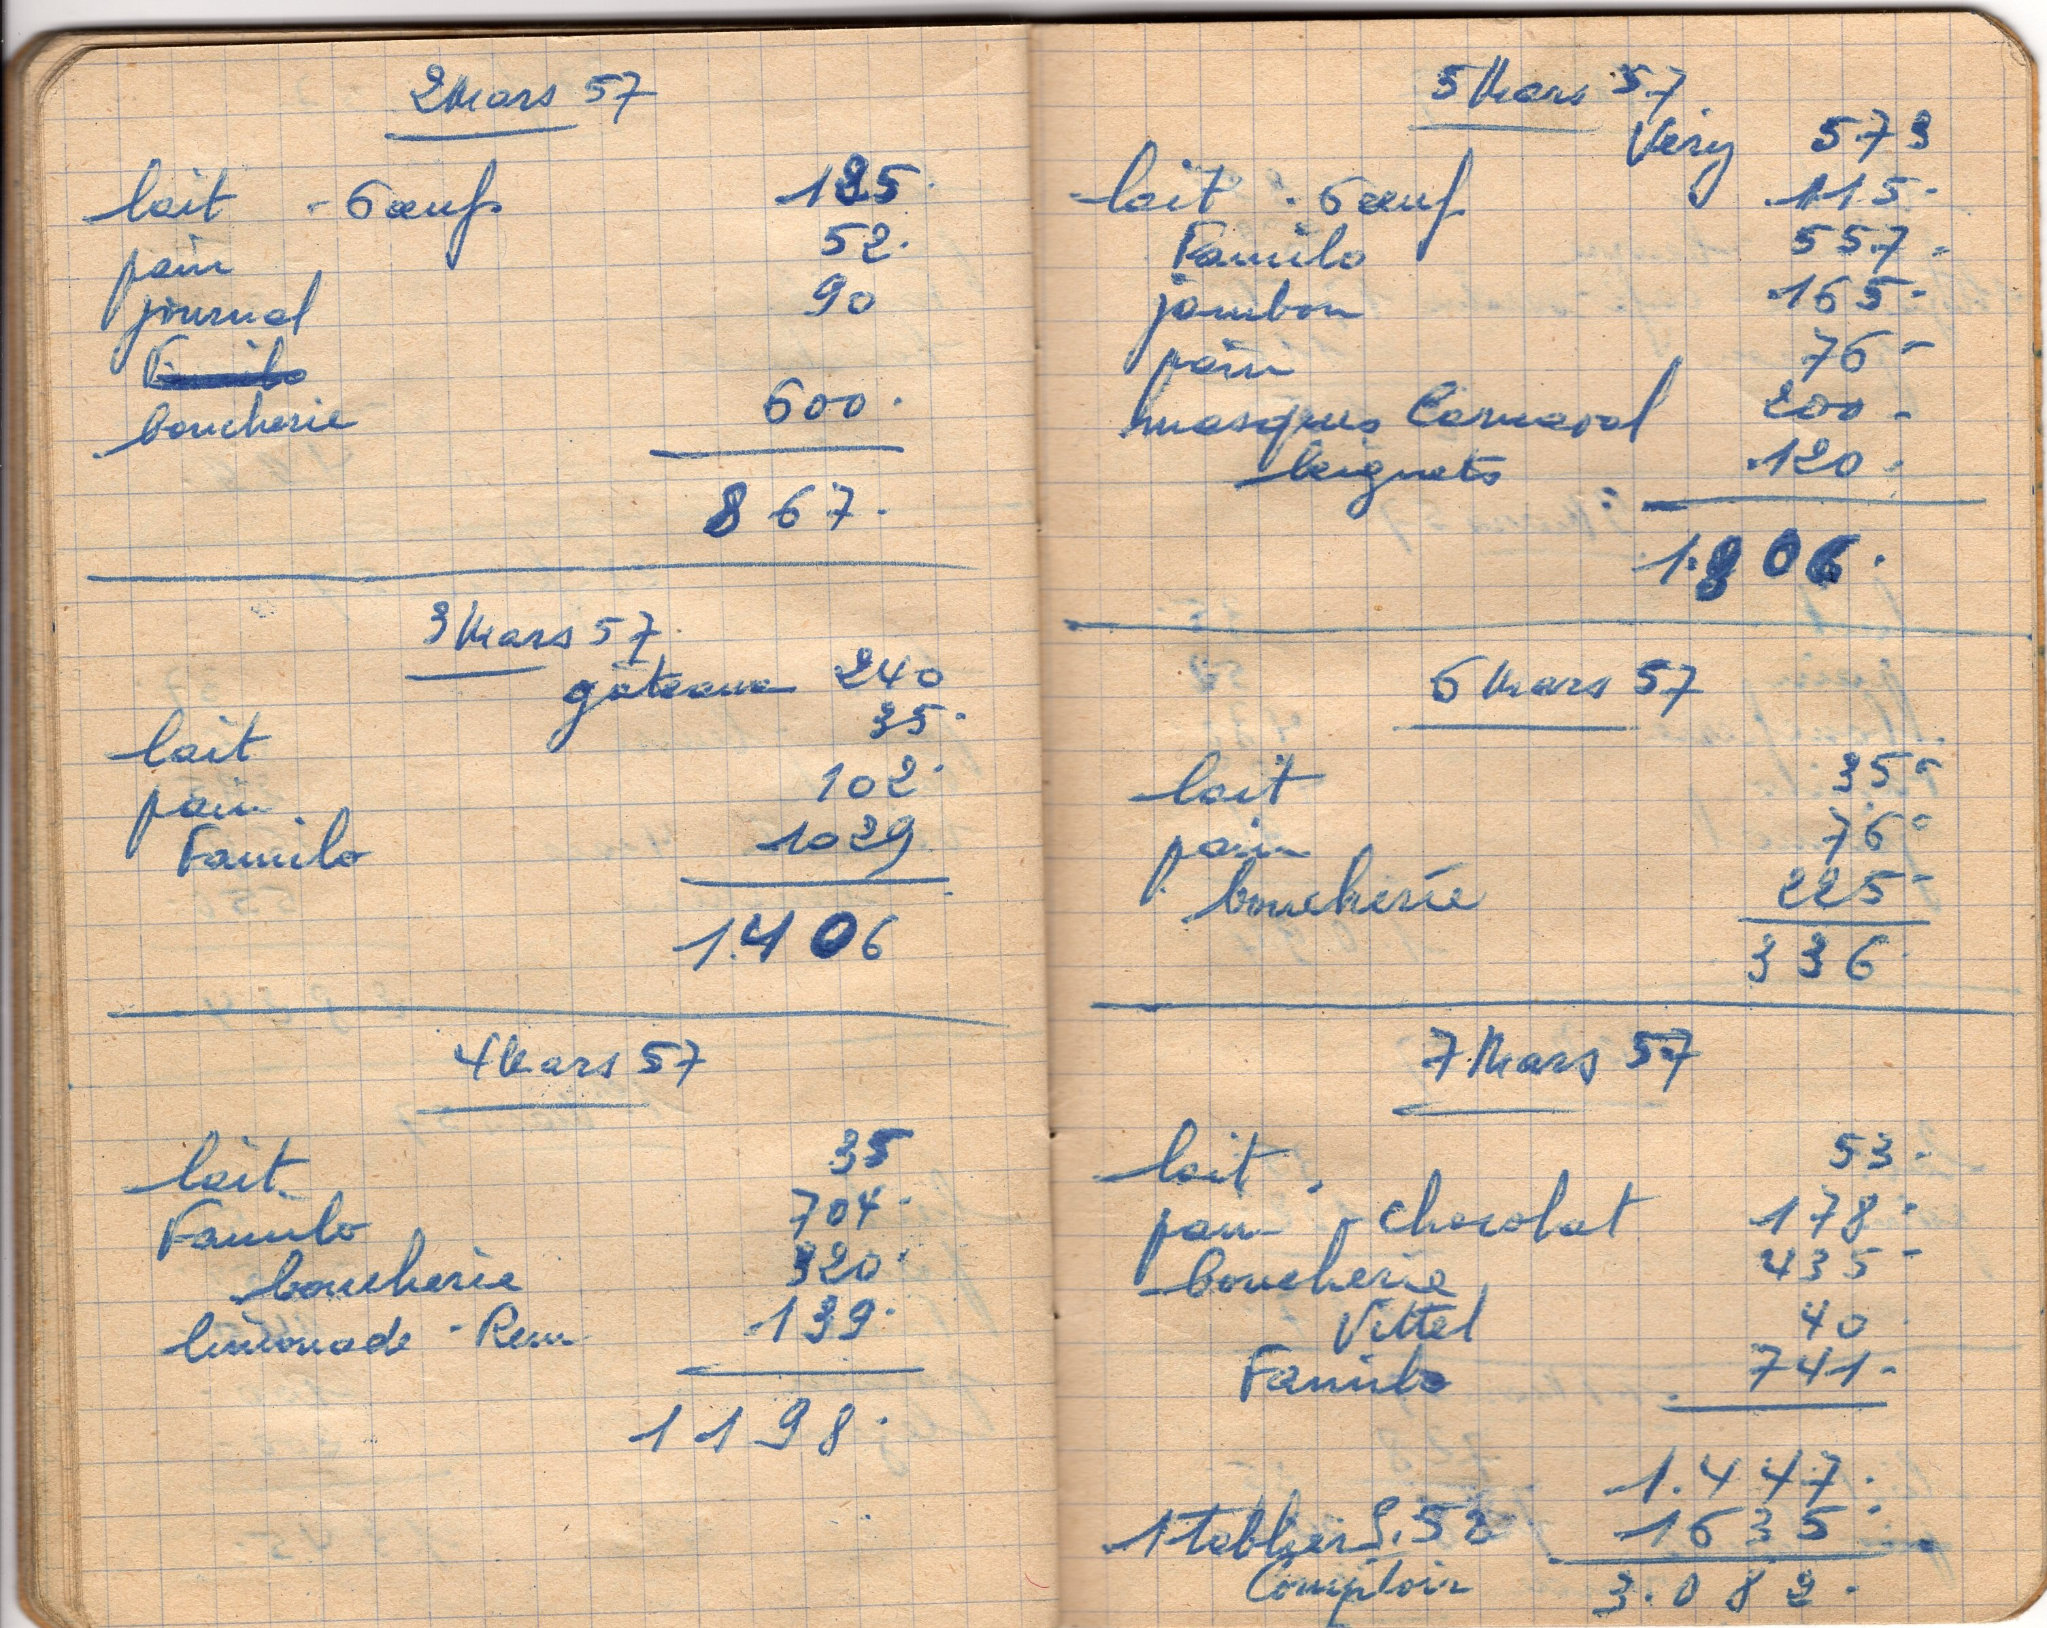 2 Mars 57
lait - 6 œufs 125.
pain 52.
journal 90
Familo
boucherie 600.
867.
3 Mars 57
gâteaux 240
lait 35.
pain 102.
Familo 1029
1.406
4 Mars 57
lait 35
Familo 704.
boucherie 320.
limonade - 139.
1198.
5 Mars 57
Véry 573
lait - 6 œuf 115-
Familo 557-
jambon 165-
pain 76-
masques Carnaval 200-
beignets 120-
1.806.
6 Mars 57
lait 35-
pain 76-
boucherie 225-
336.
7 Mars 57
lait. 53.
pain chocolat 178-
boucherie 435-
Vittel 40.
Familo 741-
1.447.
1 tablier 1635-
Comptoir 3.082.